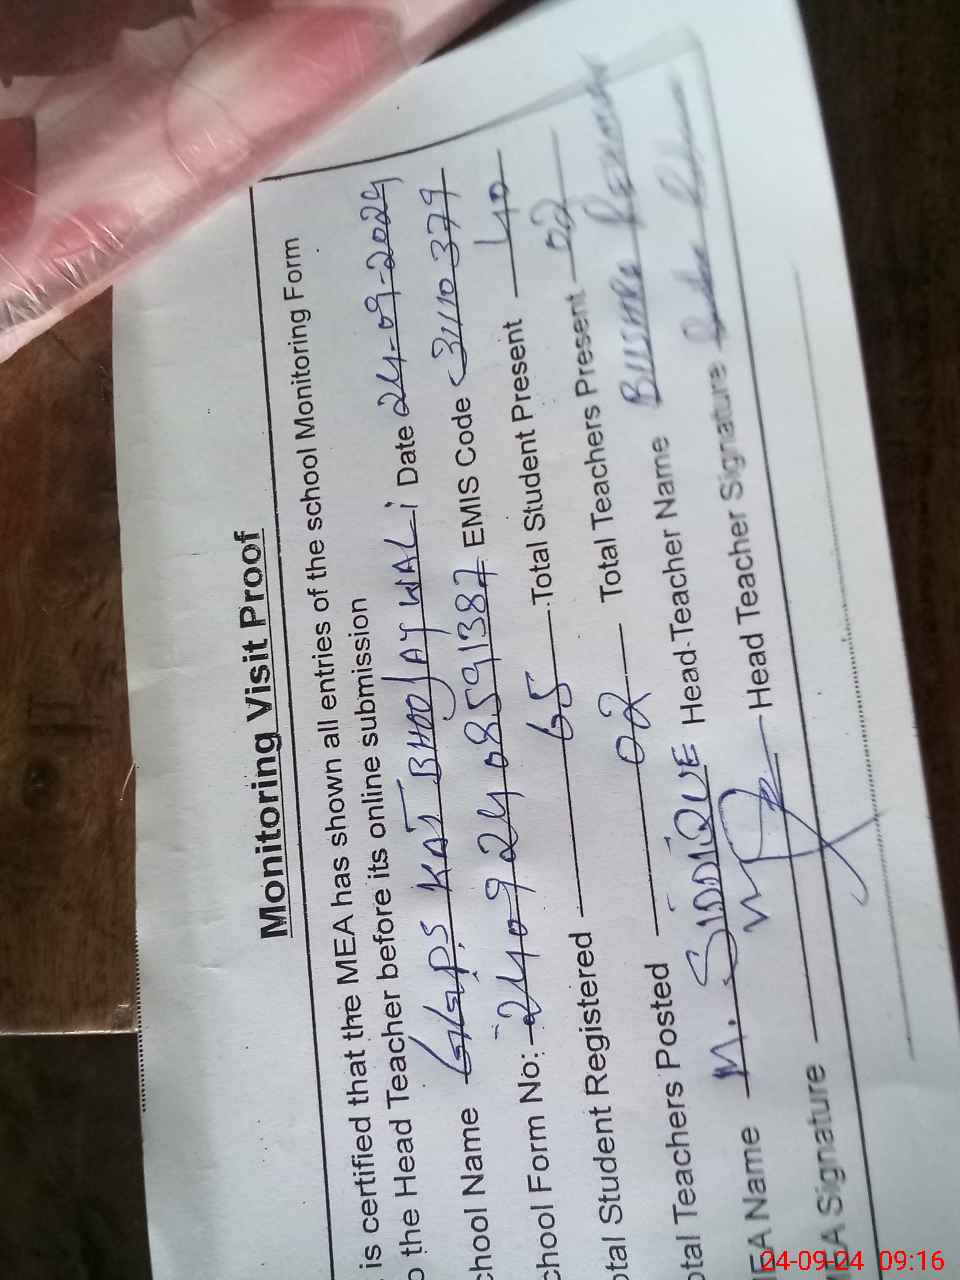 Monitoring Visit Proof
is certified that the MEA has shown all entries of the school Monitoring Form
o the Head Teacher before its online submission
chool Name GGPS KOT BHOOJAY WAL i Date 24-09-2024
chool Form No: 24092408591387 EMIS Code 31110379
otal Student Registered 65 Total Student Present 40
otal Teachers Posted 02 Total Teachers Present 02
EA Name M. SIDDIQUE Head Teacher Name BUSHRA
EA Signature Head Teacher Signature
24-09-24 09:16